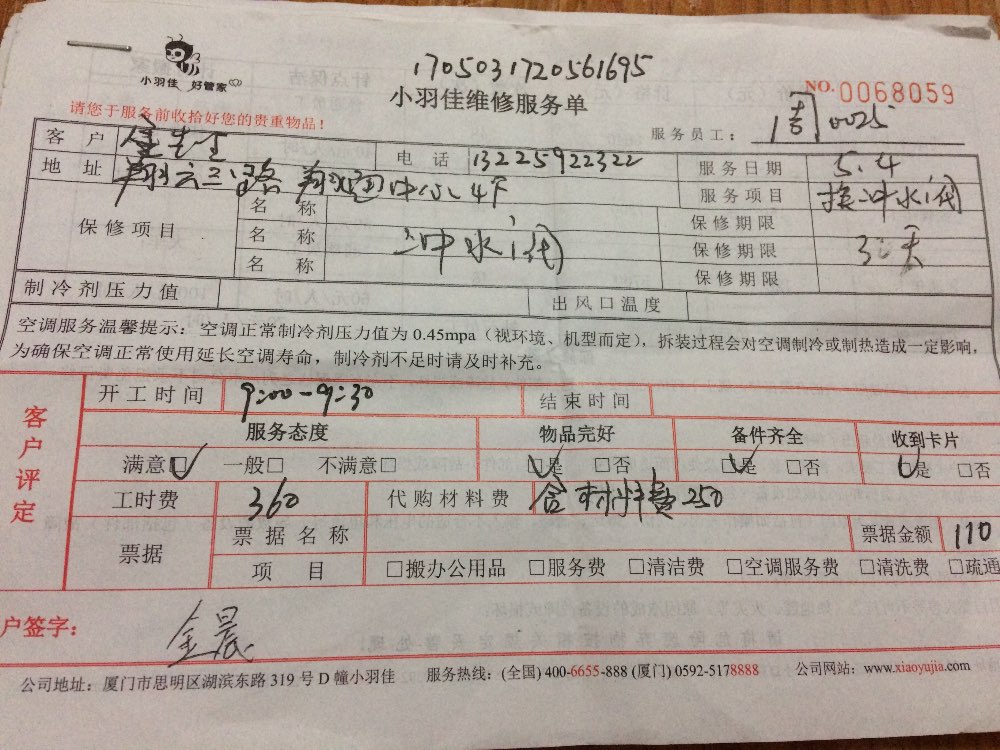 小羽佳 好管家
1705031720561695
小羽佳维修服务单
NO. 0068059
请您于服务前收拾好您的贵重物品！
服务员工： 周 0025
客户 金先生 电话 13225922322 服务日期 5.4
地址 翔云三路翔运中心4F 服务项目 换冲水阀
保修项目 名称 保修期限
名称 冲水阀 保修期限 30天
名称 保修期限
制冷剂压力值 出风口温度
空调服务温馨提示：空调正常制冷剂压力值为 0.45mpa（视环境、机型而定），拆装过程会对空调制冷或制热造成一定影响，
为确保空调正常使用延长空调寿命，制冷剂不足时请及时补充。
客户评定
开工时间 9:00-9:30 结束时间
服务态度 物品完好 备件齐全 收到卡片
满意□ 一般□ 不满意□ □是 □否 □是 □否 □是 □否
工时费 360 代购材料费 含材料费250
票据 票据名称 票据金额 110
项目 □搬办公用品 □服务费 □清洁费 □空调服务费 □清洗费 □疏通
户签字： 金晨
公司地址：厦门市思明区湖滨东路 319 号 D 幢小羽佳 服务热线：(全国) 400-6655-888 (厦门) 0592-5178888 公司网站：www.xiaoyujia.com